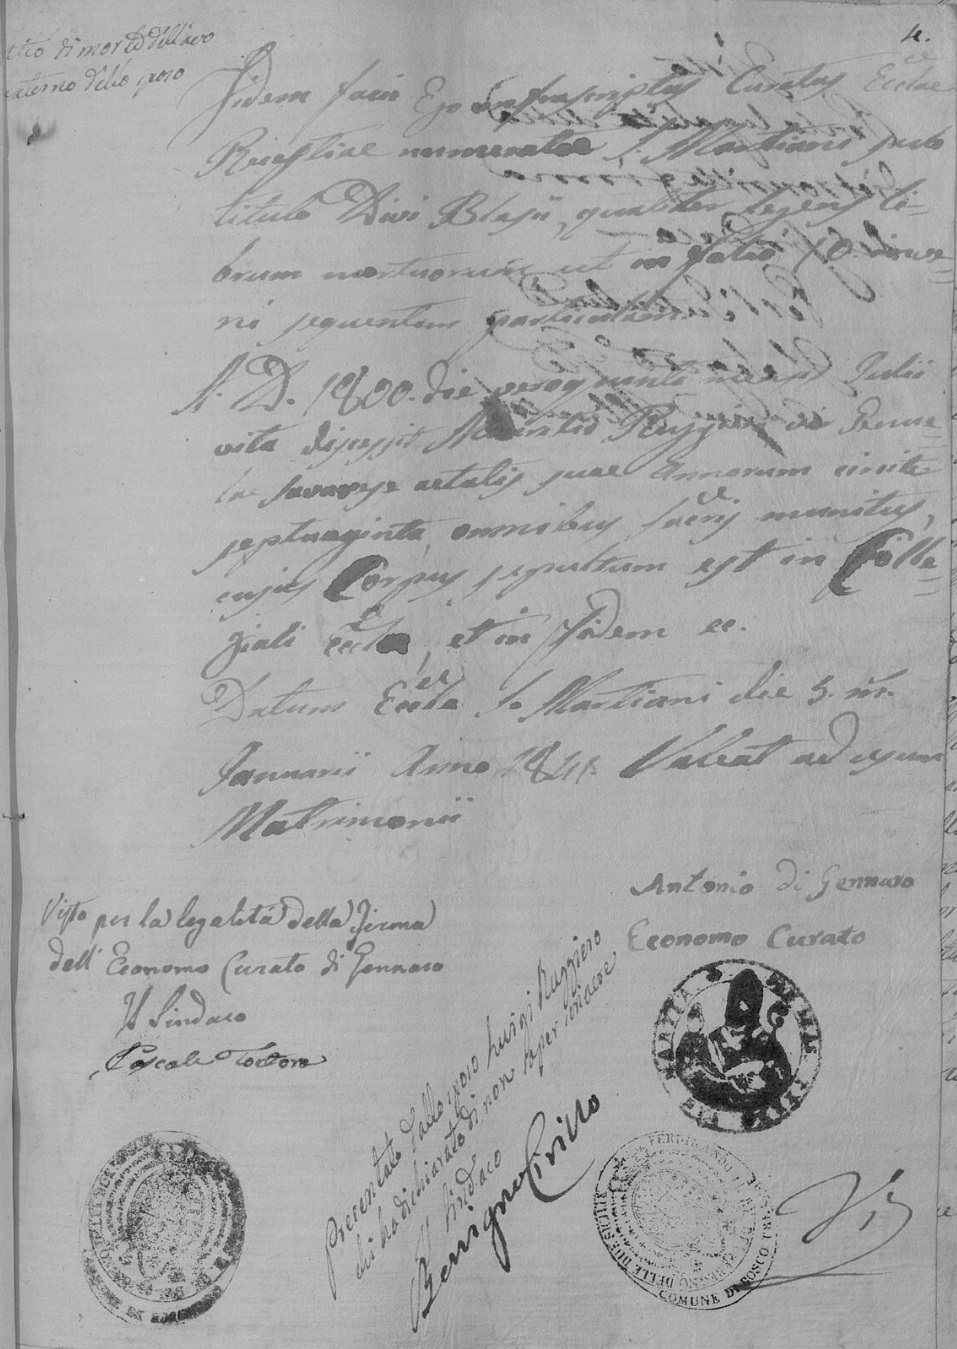 4.
Atto di morte dell'avo
paterno dello sposo
Fidem facio Ego infrascriptus Curatus Ecclae
Recettiae numeratae S. Martiani sub
titulo Divi Blasii, qualiter legens li-
brum mortuorum ut in folio 10 inve-
ni sequentem particulam
A. D. 1800. die mensis Julii
vita discessit Ruggiero
Savarese aetatis suae Annorum circiter
septuaginta, omnibus sacris munitus,
cujus Corpus sepultum est in Colle-
giali Eccla, et in fidem ec.
Datum Eccla S. Martiani die 5. ms.
Januarii Anno Valeat ad usum
Matrimonii
Antonio di Gennaro
Economo Curato
Visto per la legalità della Firma
dell' Economo Curato di Gennaro
Il Sindaco
Pascale Tortora
Presentato dallo sposo Luigi Ruggiero
che ha dichiarato di non saper
Il Sindaco
Benigno Cirillo
FERDINANDO
REGNO DELLE DUE SICILIE
COMUNE DI BOSCO